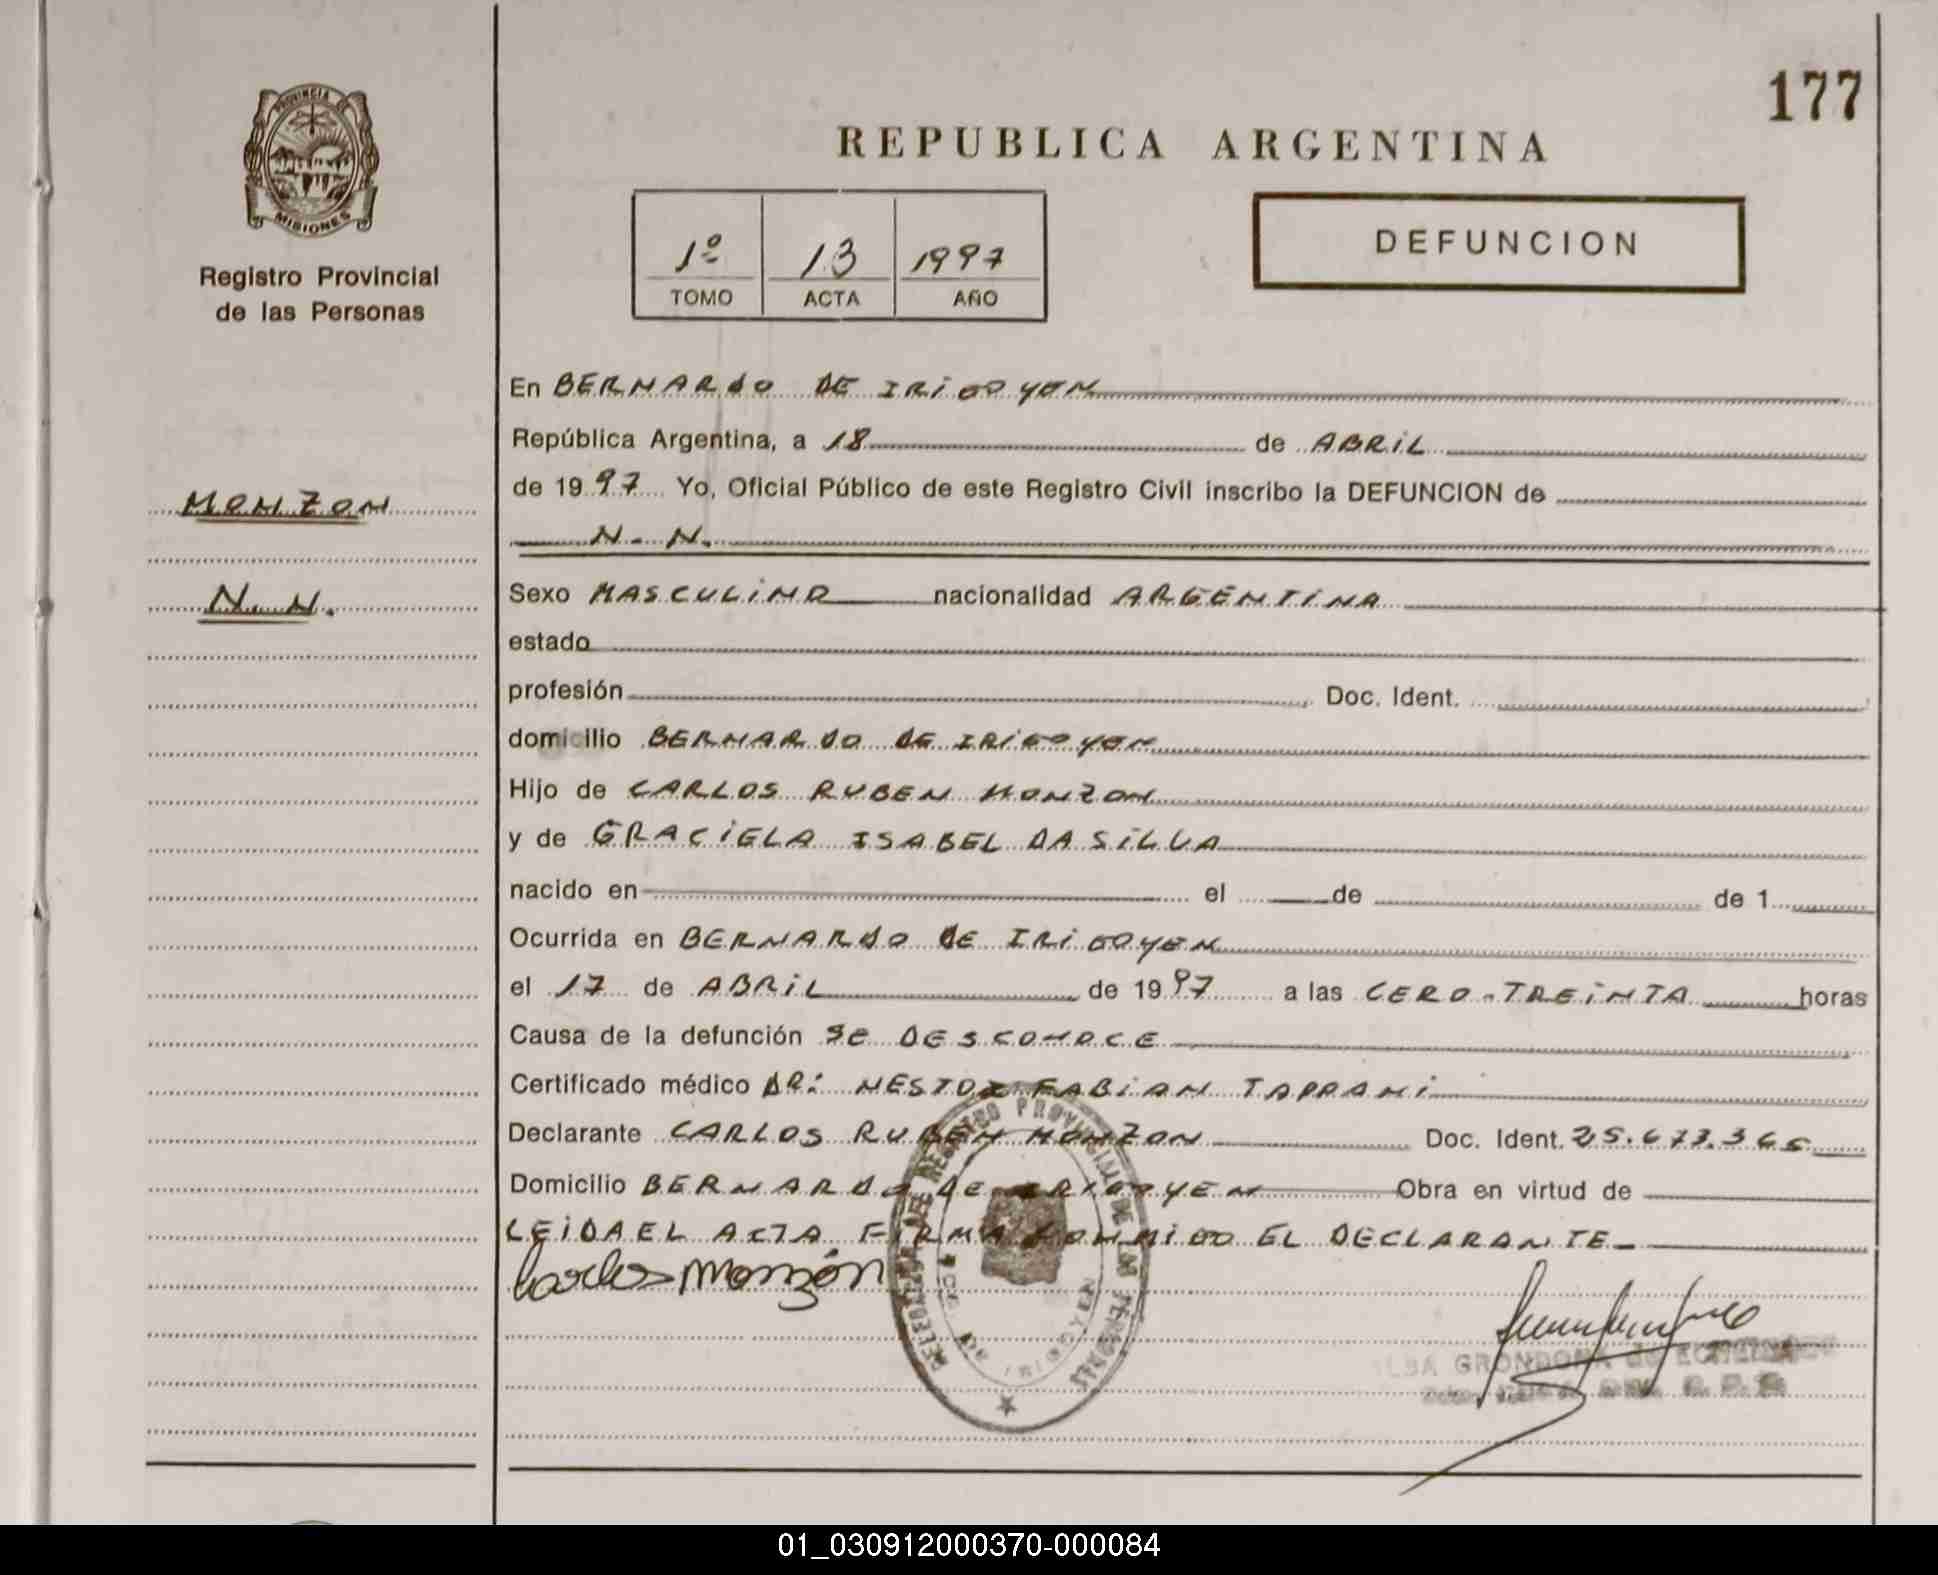 177
PROVINCIA DE
MISIONES
Registro Provincial
de las Personas
REPUBLICA ARGENTINA
1º 13 1997
TOMO ACTA AÑO
DEFUNCION
MONZON
N. N.
En BERNARDO DE IRIGOYEN
República Argentina, a 18 de ABRIL
de 1997 Yo, Oficial Público de este Registro Civil inscribo la DEFUNCION de
N. N.
Sexo MASCULINO nacionalidad ARGENTINA
estado
profesión Doc. Ident.
domicilio BERNARDO DE IRIGOYEN
Hijo de CARLOS RUBEN MONZON
y de GRACIELA ISABEL DA SILVA
nacido en el de de 1
Ocurrida en BERNARDO DE IRIGOYEN
el 17 de ABRIL de 1997 a las CERO-TREINTA horas
Causa de la defunción SE DESCONOCE
Certificado médico DR: NESTOR FABIAN TAPPANI
Declarante CARLOS RUBEN MONZON Doc. Ident. 25.673.365
Domicilio BERNARDO DE IRIGOYEN Obra en virtud de
LEIDA EL ACTA FIRMA CONMIGO EL DECLARANTE
Carlos Monzón
GRONDONA de
01_030912000370-000084